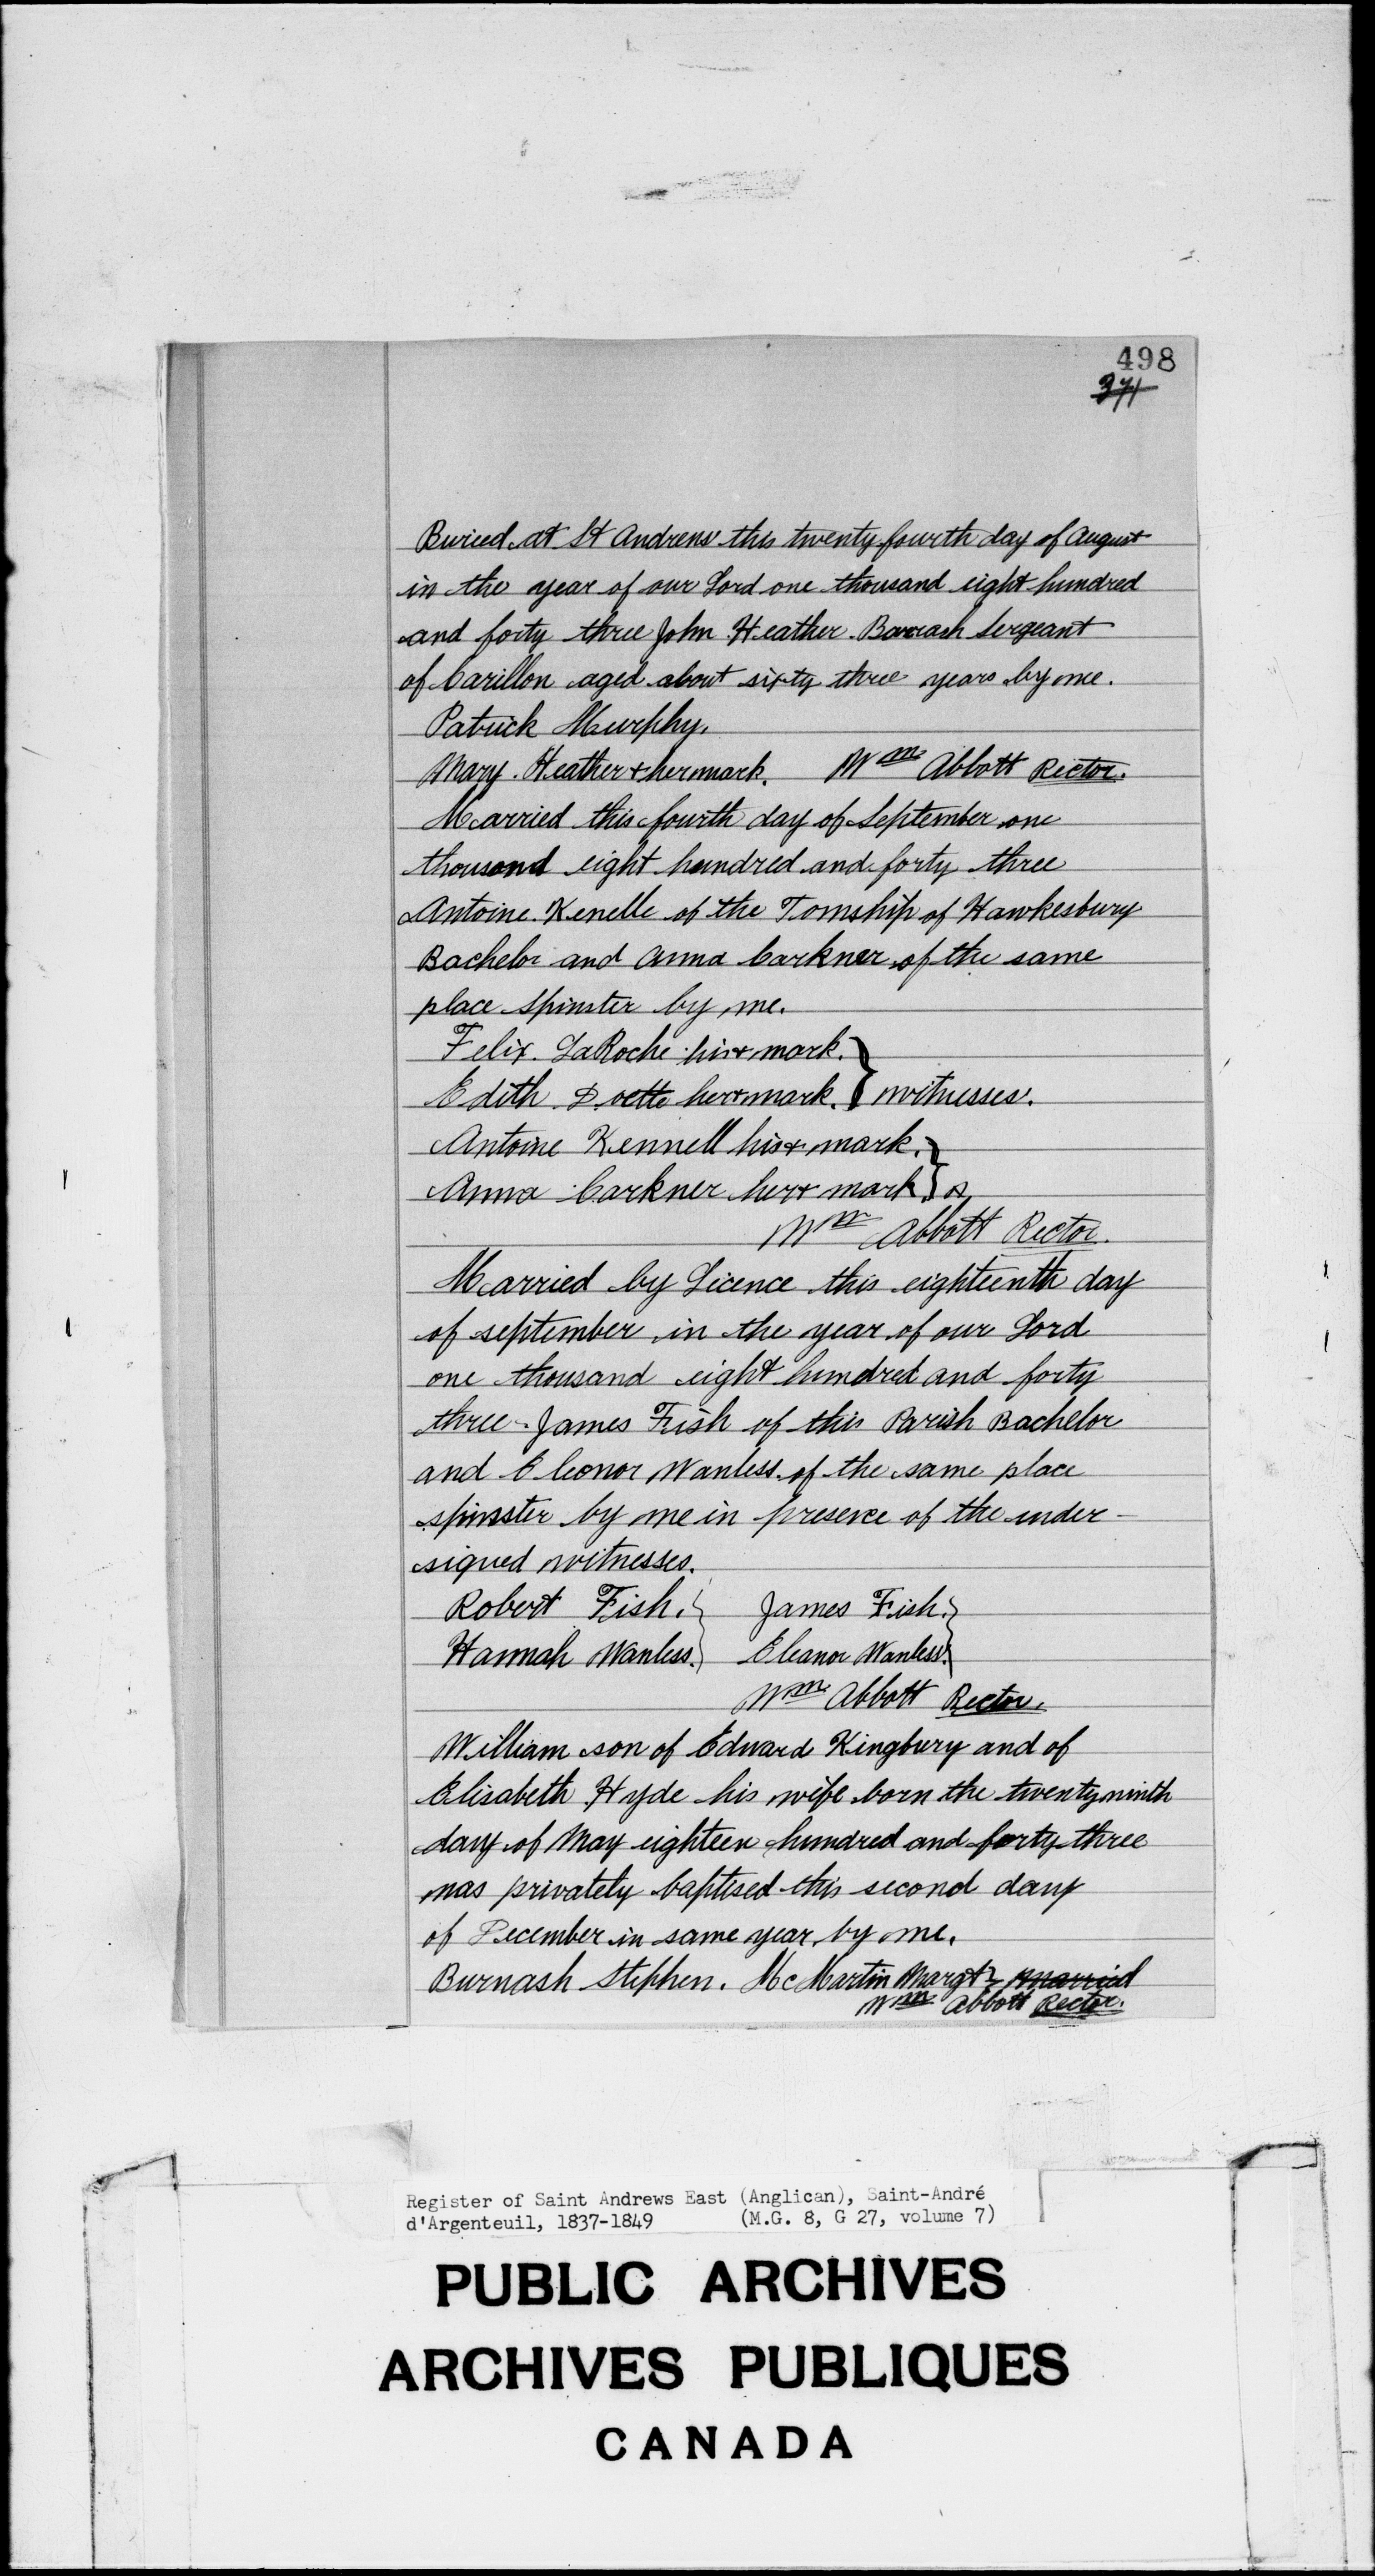 498
371
Buried at St Andrews this twenty fourth day of August
in the year of our Lord one thousand eight hundred
and forty three John Heather Barrack Sergeant
of Carillon aged about sixty three years by me.
Patrick Murphy.
Mary Heather + her mark. Wm Abbott Rector.
Married this fourth day of September one
thousand eight hundred and forty three
Antoine Kenelle of the Township of Hawkesbury
Bachelor and Anna Carkner of the same
place Spinster by me.
Felix LaRoche his + mark.
Edith D. oette her + mark. } witnesses.
Antoine Kennell his + mark.
Anna Carkner her + mark }
Wm Abbott Rector.
Married by Licence this eighteenth day
of september in the year of our Lord
one thousand eight hundred and forty
three James Fish of this Parish Bachelor
and Eleonor Wanless of the same place
spinster by me in presence of the under-
signed witnesses.
Robert Fish. } James Fish. }
Hannah Wanless. } Eleanor Wanless. }
Wm Abbott Rector.
William son of Edward Kingbury and of
Elisabeth Hyde his wife born the twenty ninth
day of May eighteen hundred and forty three
was privately baptised this second day
of December in same year by me.
Burnash Stephen. McMartin Margt } married
Wm Abbott Rector.
Register of Saint Andrews East (Anglican), Saint-André
d'Argenteuil, 1837-1849 (M.G. 8, G 27, volume 7)
PUBLIC ARCHIVES
ARCHIVES PUBLIQUES
CANADA